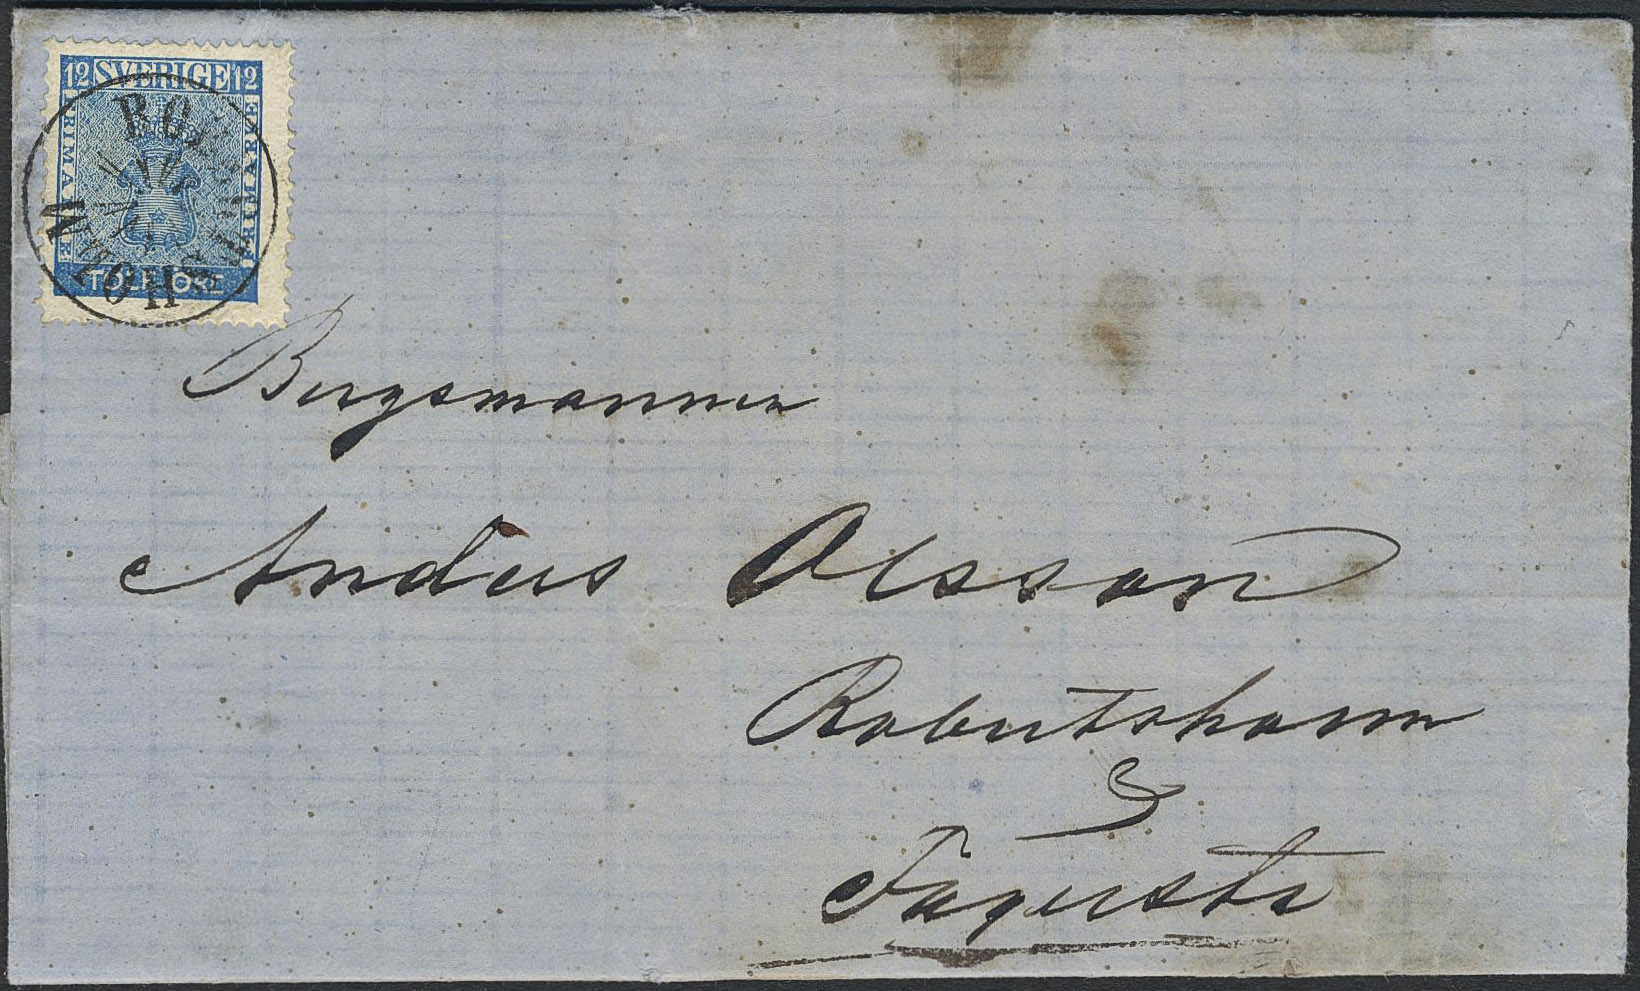 12 SVERIGE 12
FRIMÄRKE
FRIMÄRKE
TOLF ÖRE
Bergsmannen
Anders Olsson
Robertsholm
Fagersta